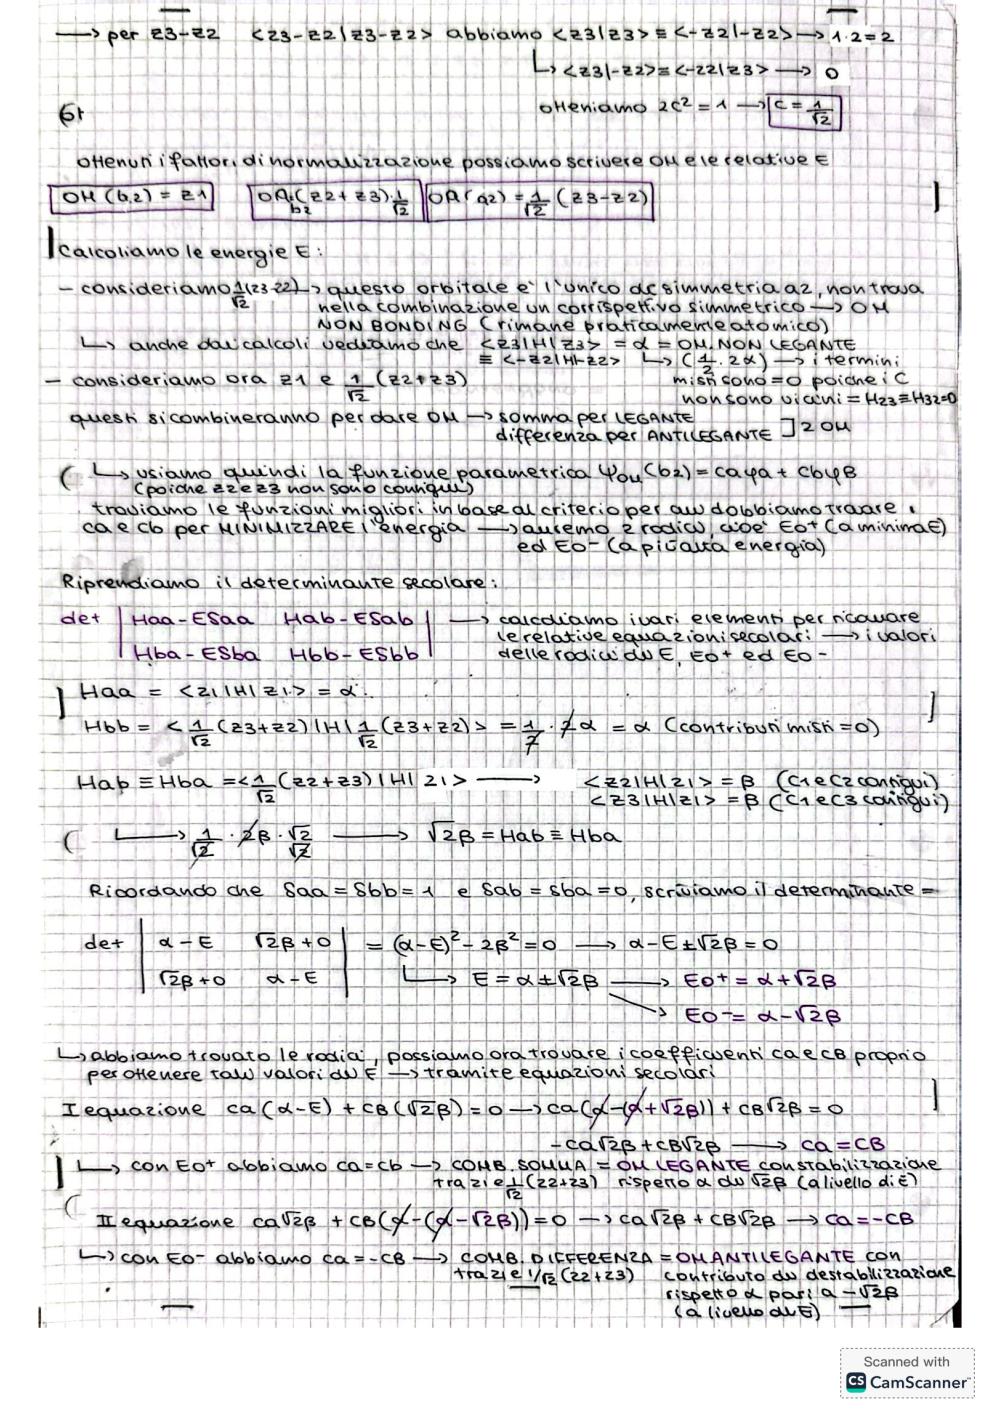 → per z3-z2 <z3-z2|z3-z2> abbiamo <z3|z3> ≡ <-z2|-z2> → 1·2=2
↳ <z3|-z2> ≡ <-z2|z3> → 0
6r
otteniamo 2c² = 1 → c = 1/√2
ottenuti i fattori di normalizzazione possiamo scrivere OM e le relative E
OM (b2) = z1 OA: (z2+z3)·1/√2 b2 OA (a2) = 1/√2 (z3-z2)
Calcoliamo le energie E:
- consideriamo 1/√2 (z3-z2) → questo orbitale è l'unico di simmetria a2, non trova
nella combinazione un corrispettivo simmetrico → OM
NON BONDING (rimane praticamente atomico)
↳ anche dai calcoli vediamo che <z3|H|z3> = α = OM. NON LEGANTE
≡ <-z2|H|-z2> ↳ (1/2 · 2α) → i termini
- consideriamo ora z1 e 1/√2 (z2+z3) misti sono = 0 poiché i C
non sono vicini = H23 ≡ H32=0
questi si combineranno per dare OM → somma per LEGANTE
differenza per ANTILEGANTE ] 2 OM
↳ usiamo quindi la funzione parametrica ΨOM (b2) = caφa + cbφB
(poiche z2 e z3 non sono contigui)
troviamo le funzioni migliori in base al criterio per cui dobbiamo trovare i
ca e cb per MINIMIZZARE l'energia → avremo 2 radici, cioe' E0+ (a minima E)
ed E0- (a più alta energia)
Riprendiamo il determinante secolare:
det | Haa-ESaa Hab-ESab | → calcoliamo i vari elementi per ricavare
le relative equazioni secolari → i valori
| Hba-ESba Hbb-ESbb | delle radici di E, E0+ ed E0-
Haa = <z1|H|z1> = α
Hbb = <1/√2 (z3+z2)|H|1/√2 (z3+z2)> = 1/2 · 2α = α (contributi misti =0)
Hab ≡ Hba = <1/√2 (z2+z3)|H|z1> → <z2|H|z1> = β (C1 e C2 contigui)
<z3|H|z1> = β (C1 e C3 contigui)
↳ 1/√2 · 2β · √2/√2 → √2β = Hab ≡ Hba
Ricordando che Saa = Sbb = 1 e Sab = Sba = 0, scriviamo il determinante =
det | α-E √2β+0 | = (α-E)² - 2β² = 0 → α-E±√2β = 0
| √2β+0 α-E | ↳ E = α±√2β → E0+ = α+√2β
→ E0- = α-√2β
↳ abbiamo trovato le radici, possiamo ora trovare i coefficienti ca e cB proprio
per ottenere tali valori di E → tramite equazioni secolari
I equazione ca(α-E) + cB(√2β) = 0 → ca(α-(α+√2β)) + cB√2β = 0
-ca√2β+cB√2β → ca=cB
↳ con E0+ abbiamo ca=cb → COMB. SOMMA = OM LEGANTE con stabilizzazione
tra z1 e 1/√2 (z2+z3) rispetto α di √2β (a livello di E)
II equazione ca√2β + cB(α-(α-√2β)) = 0 → ca√2β + cB√2β → ca=-cB
↳ con E0- abbiamo ca=-cB → COMB. DIFFERENZA = OM ANTILEGANTE con
tra z1 e 1/√2 (z2+z3) contributo di destabilizzazione
rispetto α pari a -√2β
(a livello di E)
Scanned with
CS CamScanner